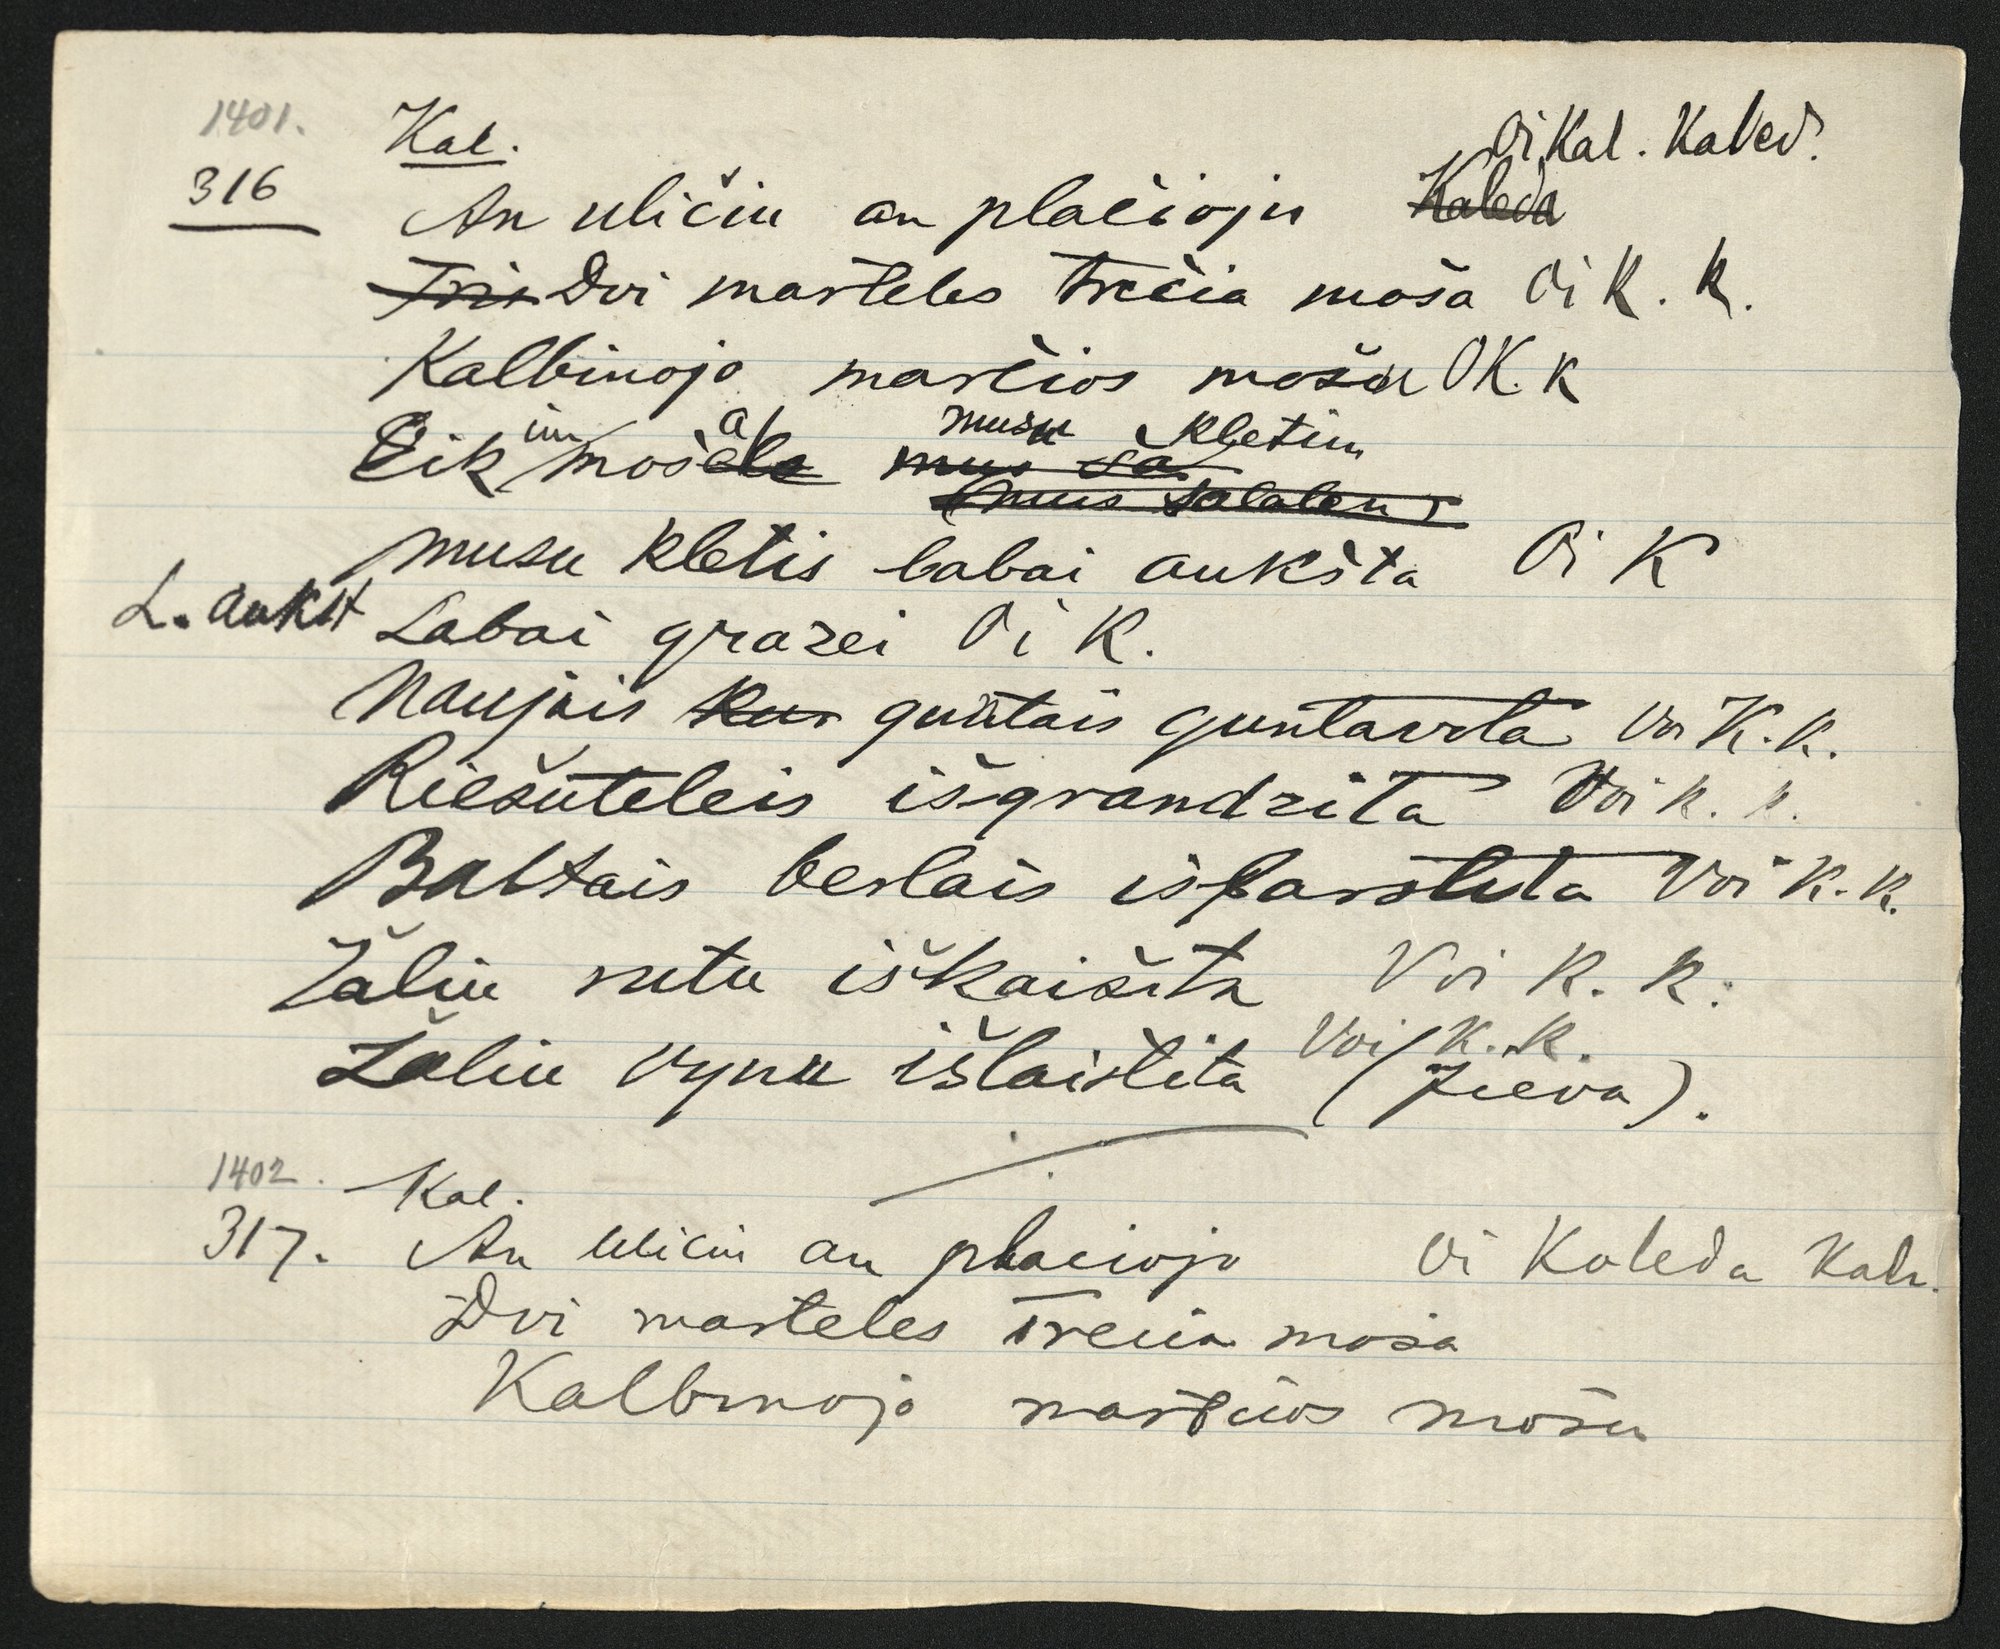 1401. Kal. Oi Kal. Kaled.
316 An uličiu an plačioju Kaleda
Tris Dvi marteles trečia moša Oi K. K.
Kalbinojo marčios mošu O K. K
Eik in moša musu kletin
mus sa
(mus salalen)
musu kletis labai aukšta Oi K
L. aukšt Labai grazei Oi K.
Naujais kur guntais guntavota Voi K. K.
Riešuteleis išgrandzita Voi K. K.
Baltais berlais isbarstita Voi K. K.
Žaliu rutu iškaišita Voi K. K.
Žaliu vynu išlaistita Voi K. K.
(Jieva).
1402. Kal.
317. An uliciu an placiojo Oi Kaleda Kale.
Dvi marteles trecia moša
Kalbinojo marčios mošu